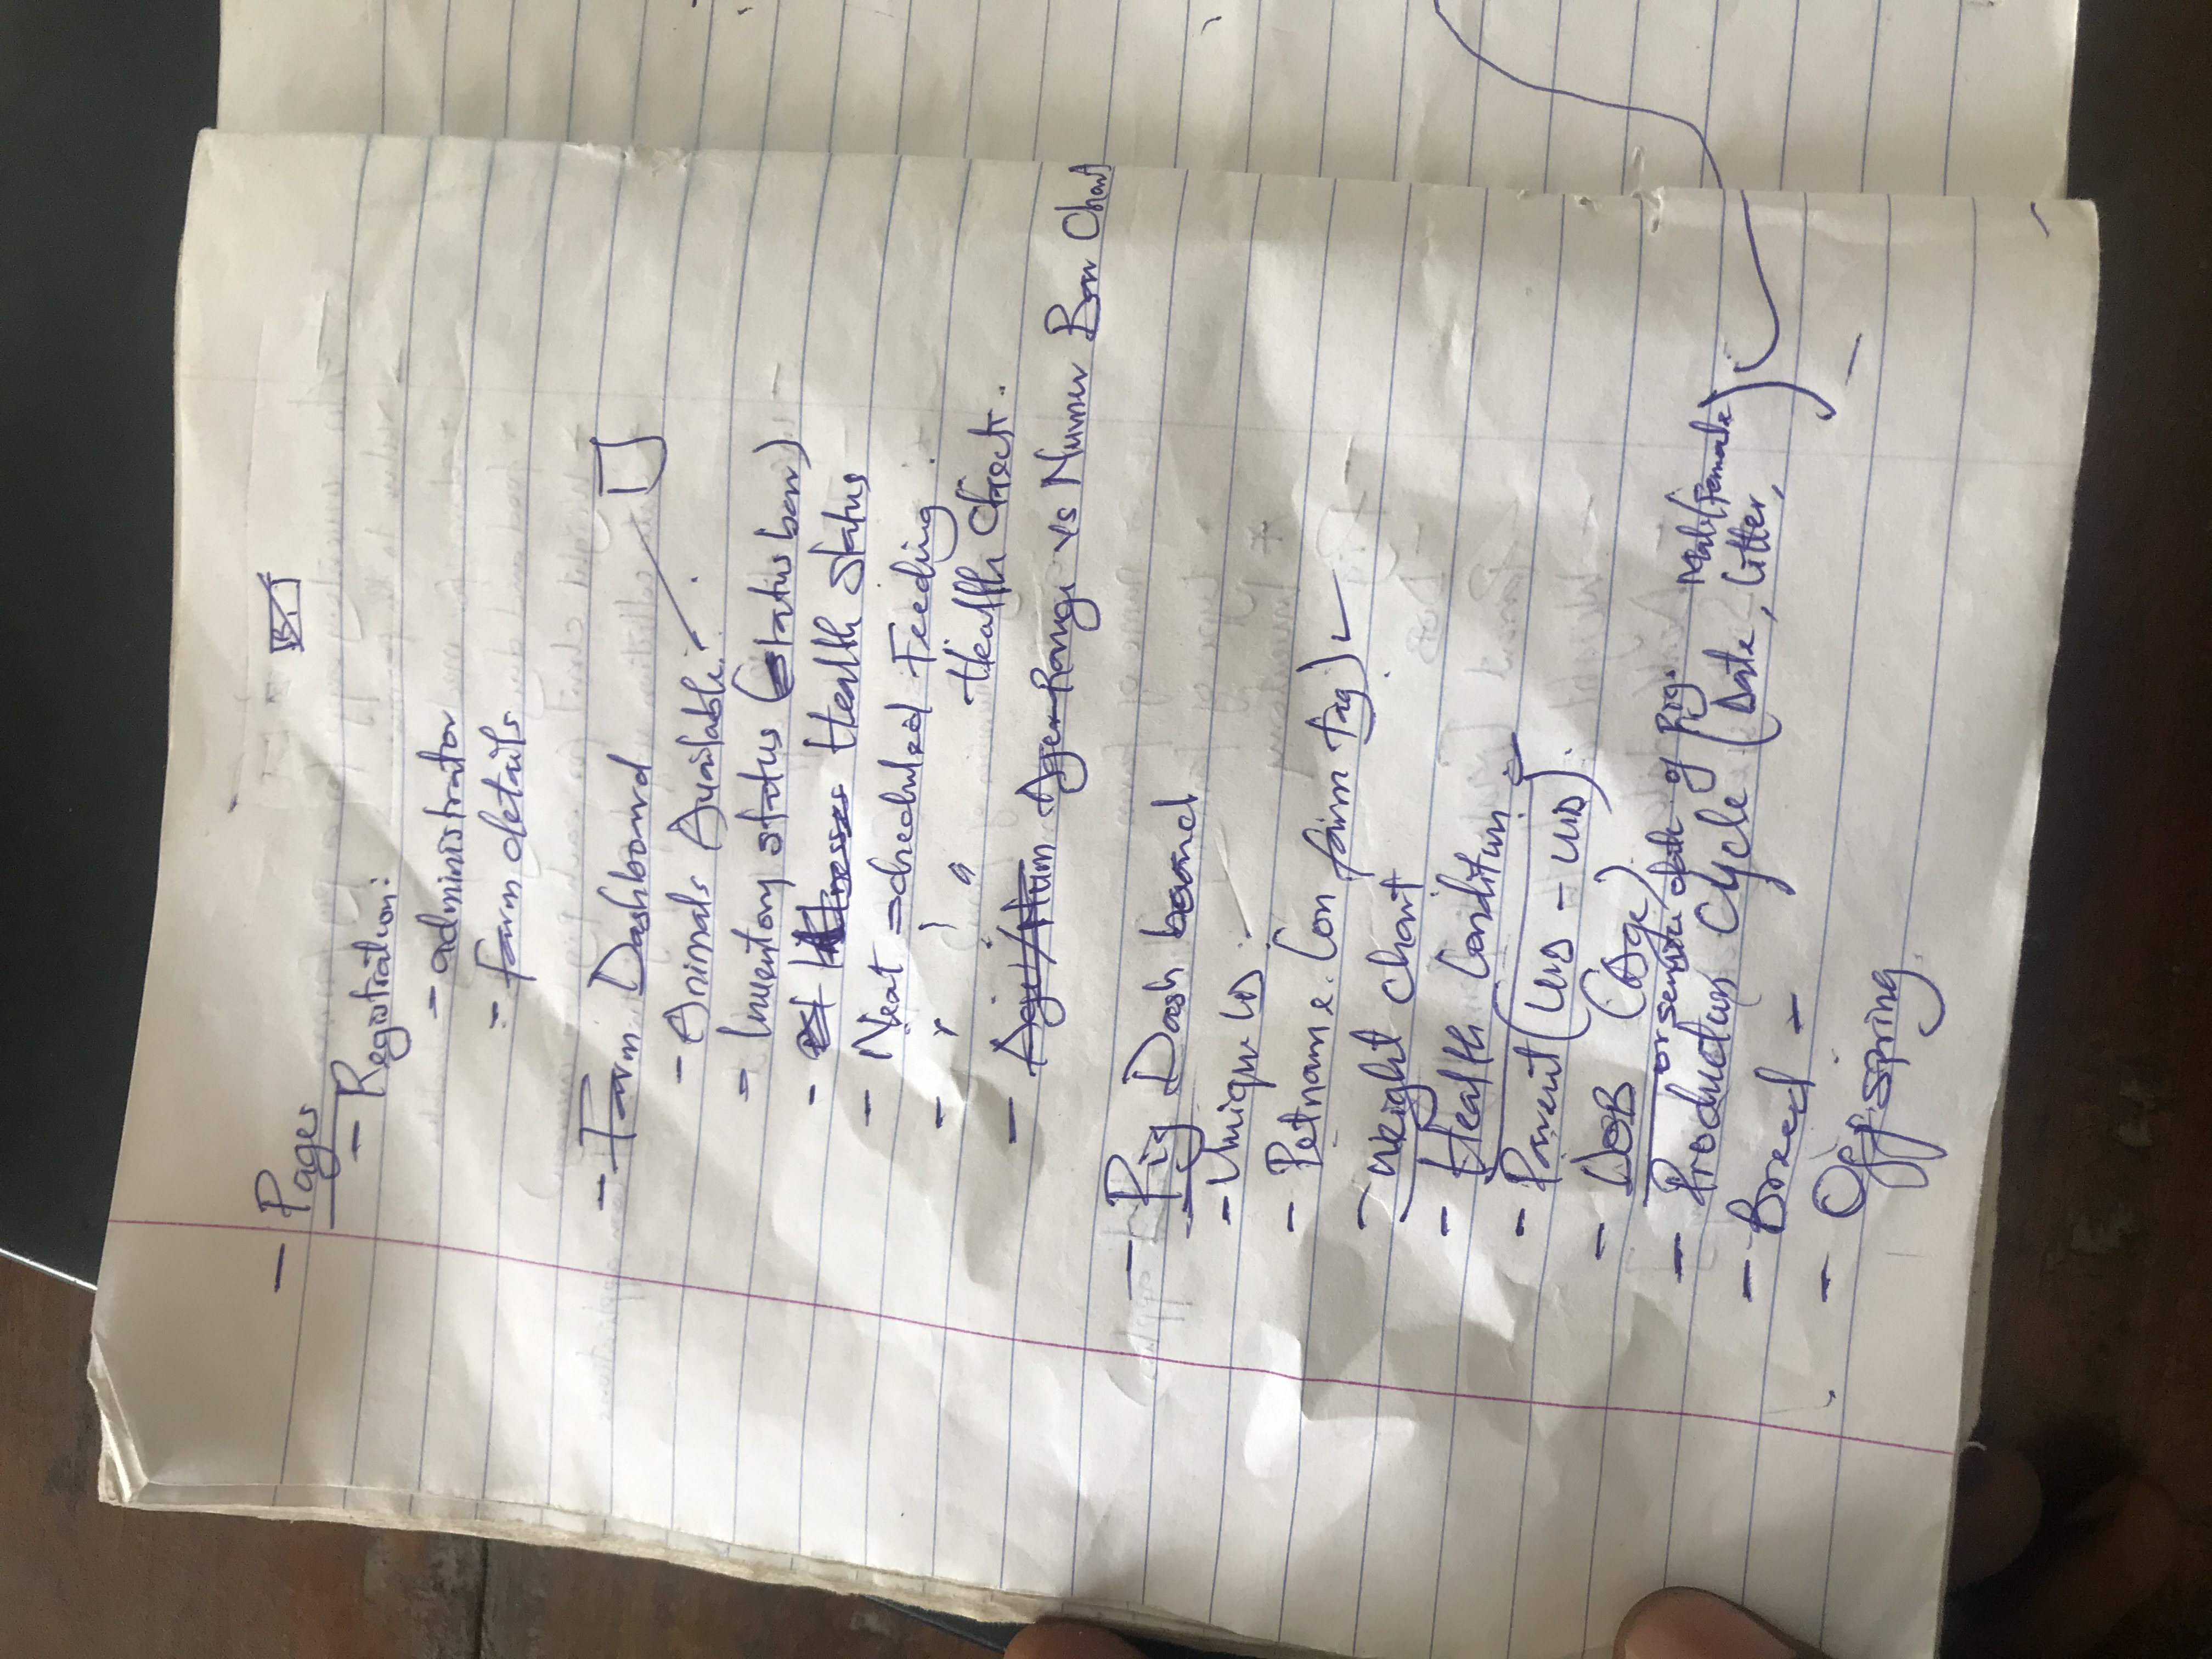 - Pages
- Registration:
- administrator
- farm details
- Farm Dashboard
- Animals Available:
- Inventory status (status bar)
- Health Status
- Next scheduled Feeding :
- " " " Health Check.
- Age/Num Age Range vs Numer Bar Chart
- Pig Dash board
- Unique ID :
- Petname. (on farm tag) ✓
- Weight chart
- Health Condition
- Parent (UID - UID).
- DOB (Age)
or service date of Pig. Male/Female
- Production Cycle (Date, Litter, )
- Breed -
- Offspring